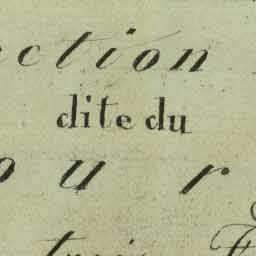 ection
dite du
our